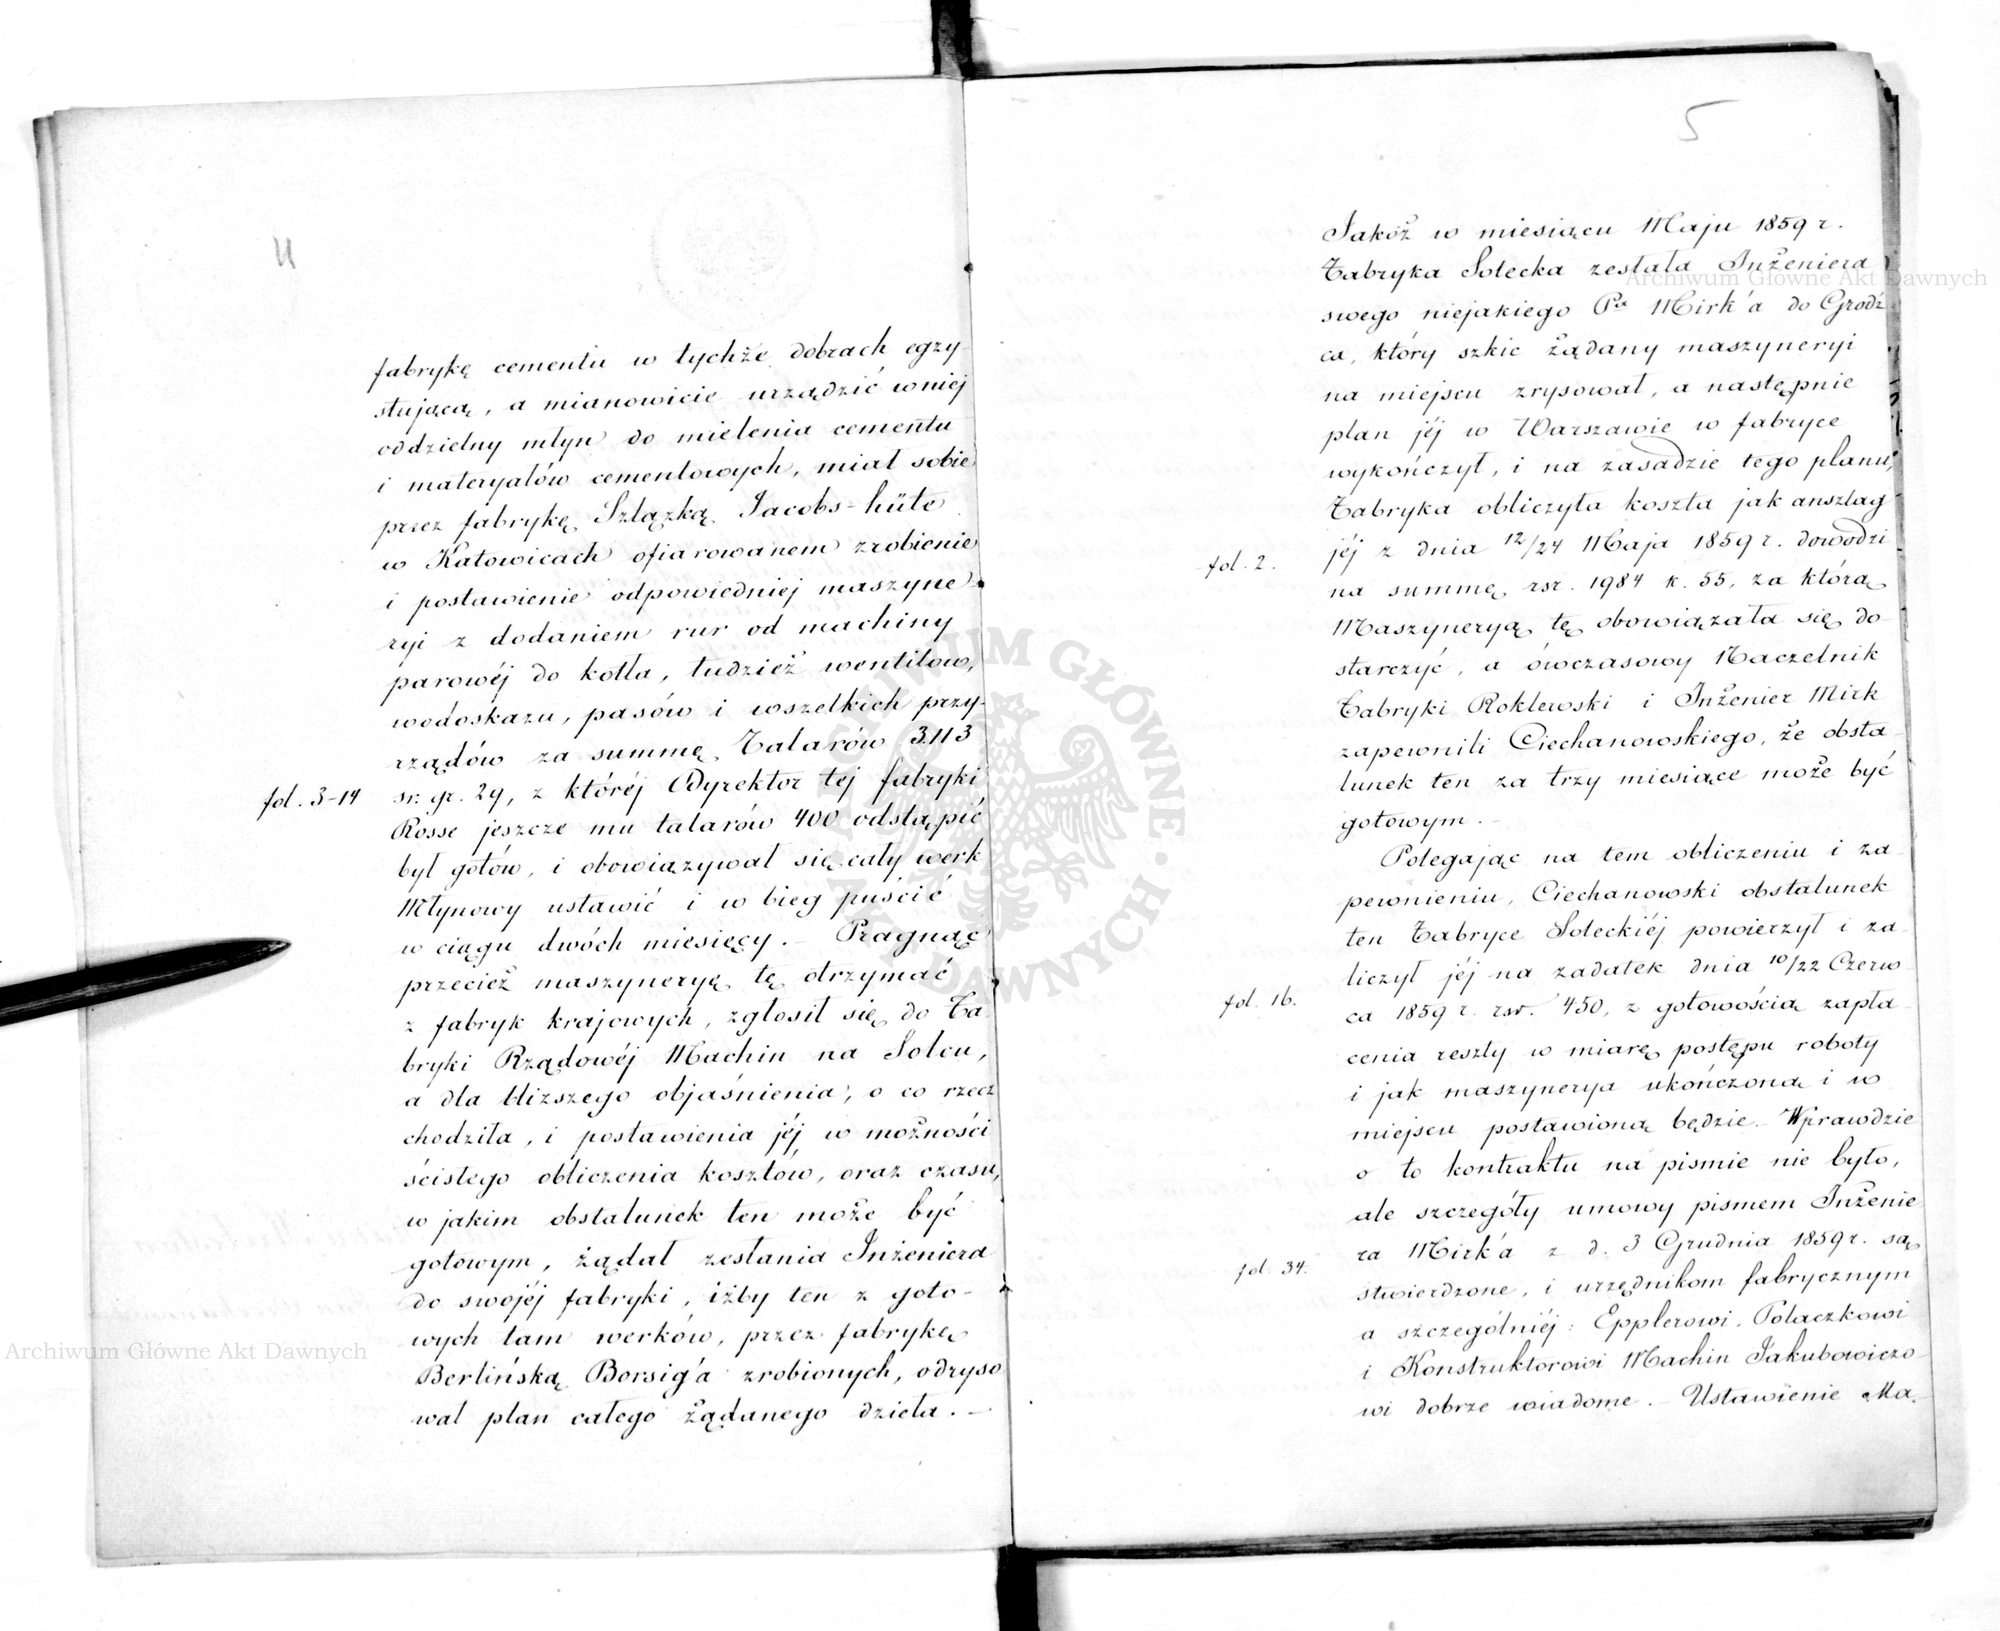 4
fabrykę cementu w tychże dobrach egzy-
stującą, a mianowicie urządzić w niej
oddzielny młyn do mielenia cementu
i materyałów cementowych, miał sobie
przez fabrykę Szlązką Jacobs-hüte
w Katowicach ofiarowanem zrobienie
i postawienie odpowiedniej maszyne-
ryi z dodaniem rur od machiny
parowéj do kotła, tudzież wentilów,
wodoskazu, pasów i wszelkich przy-
rządów za summę Talarów 3113
fol. 3-14 sr. gr. 29, z któréj Dyrektor tej fabryki
Rosse jeszcze mu talarów 400 odstąpić
był gotów, i obowiązywał się cały werk
Młynowy ustawić i w bieg puścić
w ciągu dwóch miesięcy. – Pragnąc
przecież maszyneryę tę otrzymać
z fabryk krajowych, zgłosił się do Fa-
bryki Rządowéj Machin na Solcu,
a dla bliższego objaśnienia, o co rzecz
chodziła, i postawienia jéj w możności
ścisłego obliczenia kosztów, oraz czasu,
w jakim obstalunek ten może być
gotowym, żądał zesłania Inżeniera
do swojéj fabryki, iżby ten z goto-
wych tam werków, przez fabrykę
Berlińską Borsig'a zrobionych, odryso
wał plan całego żądanego dzieła. –
5
Jakóż w miesiącu Maju 1859 r.
Fabryka Solecka zesłała Inżeniera
swego niejakiego Pa Mirk'a do Grodź
ca, który szkic żądany maszyneryi
na miejscu zrysował, a następnie
plan jéj w Warszawie w fabryce
wykończył, i na zasadzie tego planu,
Fabryka obliczyła koszta jak anszlag
fol. 2. jéj z dnia 12/24 Maja 1859 r. dowodzi
na summę rsr. 1984 k. 55, za którą
Maszyneryą tę obowiązała się do-
starczyć, a ówczasowy Naczelnik
Fabryki Roklewski i Inżenier Mirk
zapewnili Ciechanowskiego, że obsta-
lunek ten za trzy miesiące może być
gotowym. –
Polegając na tem obliczeniu i za-
pewnieniu, Ciechanowski obstalunek
ten Fabryce Soleckiéj powierzył i za-
liczył jéj na zadatek dnia 10/22 Czerw-
fol. 16. ca 1859 r. rsr. 450, z gotowością zapła-
cenia reszty w miarę postępu roboty
i jak maszynerya ukończoną i w
miejscu postawioną będzie. – Wprawdzie
o to kontraktu na pismie nie było,
ale szczegóły umowy pismem Inżenie
fol. 34. ra Mirk'a z d. 3 Grudnia 1859 r. są
stwierdzone, i urzędnikom fabrycznym
a szczególniéj: Epplerowi, Polaczkowi
i Konstruktorowi Machin Jakubowiczo-
wi dobrze wiadome. – Ustawienie Ma-
Archiwum Główne Akt Dawnych
Archiwum Główne Akt Dawnych
ARCHIWUM GŁÓWNE AKT DAWNYCH